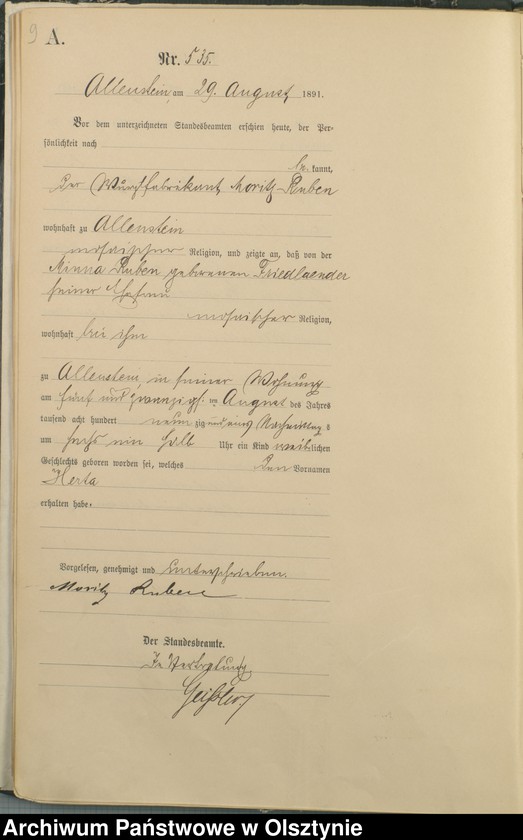 9 A.
Nr. 535.
Allenstein, am 29. August 1891.
Vor dem unterzeichneten Standesbeamten erschien heute, der Per-
sönlichkeit nach
be kannt,
der Wurstfabrikant Moritz Ruben
wohnhaft zu Allenstein
mosaischer Religion, und zeigte an, daß von der
Minna Ruben geborenen Friedlaender
seiner Ehefrau
mosaischer Religion,
wohnhaft bei ihm
zu Allenstein, in seiner Wohnung
am fünf und zwanzigst. ten August des Jahres
tausend acht hundert neun zig und eins Nachmittag s
um sechs ein halb Uhr ein Kind weib lichen
Geschlechts geboren worden sei, welches den Vornamen
Herta
erhalten habe.
Vorgelesen, genehmigt und unterschrieben.
Moritz Ruben
Der Standesbeamte.
In Vertretung
Geißler
Archiwum Państwowe w Olsztynie